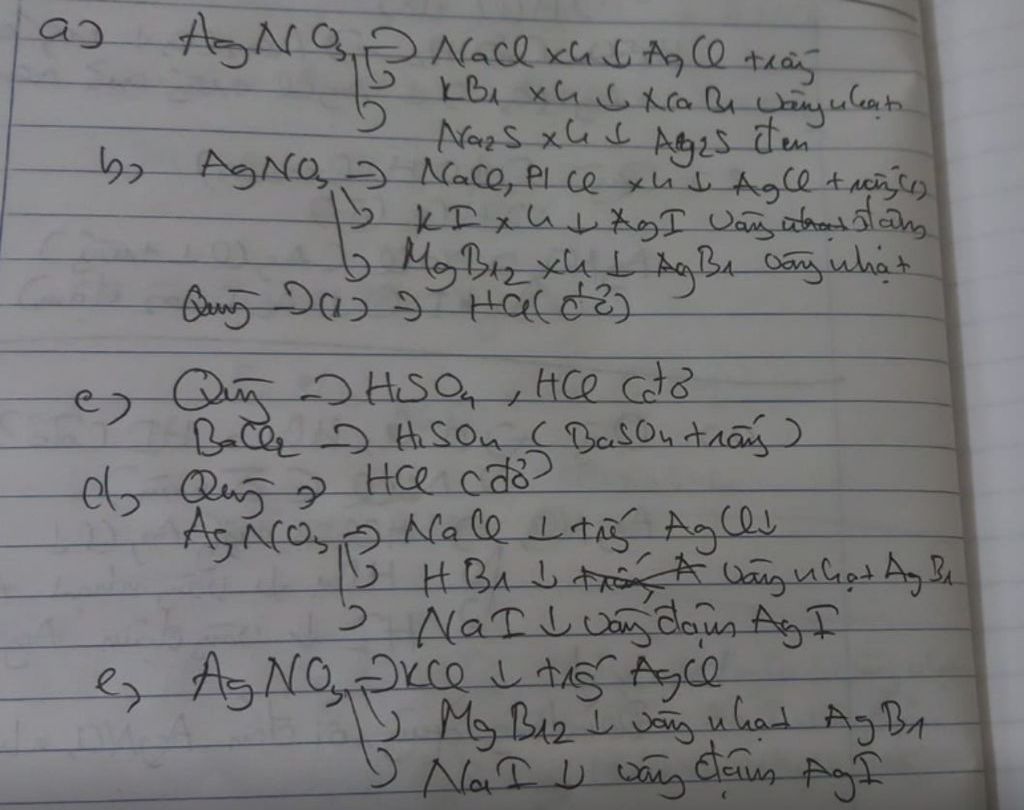 a) AgNO3 → NaCl xh ↓ AgCl trắng
KBr xh ↓ AgBr vàng nhạt
Na2S xh ↓ Ag2S đen
b) AgNO3 → NaCl, HCl xh ↓ AgCl trắng (1)
KI xh ↓ AgI vàng đậm
MgBr2 xh ↓ AgBr vàng nhạt
Quỳ → (1) → HCl (đỏ)
c) Quỳ → H2SO4, HCl (đỏ
BaCl2 → H2SO4 (BaSO4 trắng)
d) Quỳ → HCl (đỏ)
AgNO3 → NaCl ↓ trắng AgCl↓
HBr ↓ vàng nhạt AgBr
NaI ↓ vàng đậm AgI
e) AgNO3 → KCl ↓ trắng AgCl
MgBr2 ↓ vàng nhạt AgBr
NaI ↓ vàng đậm AgI